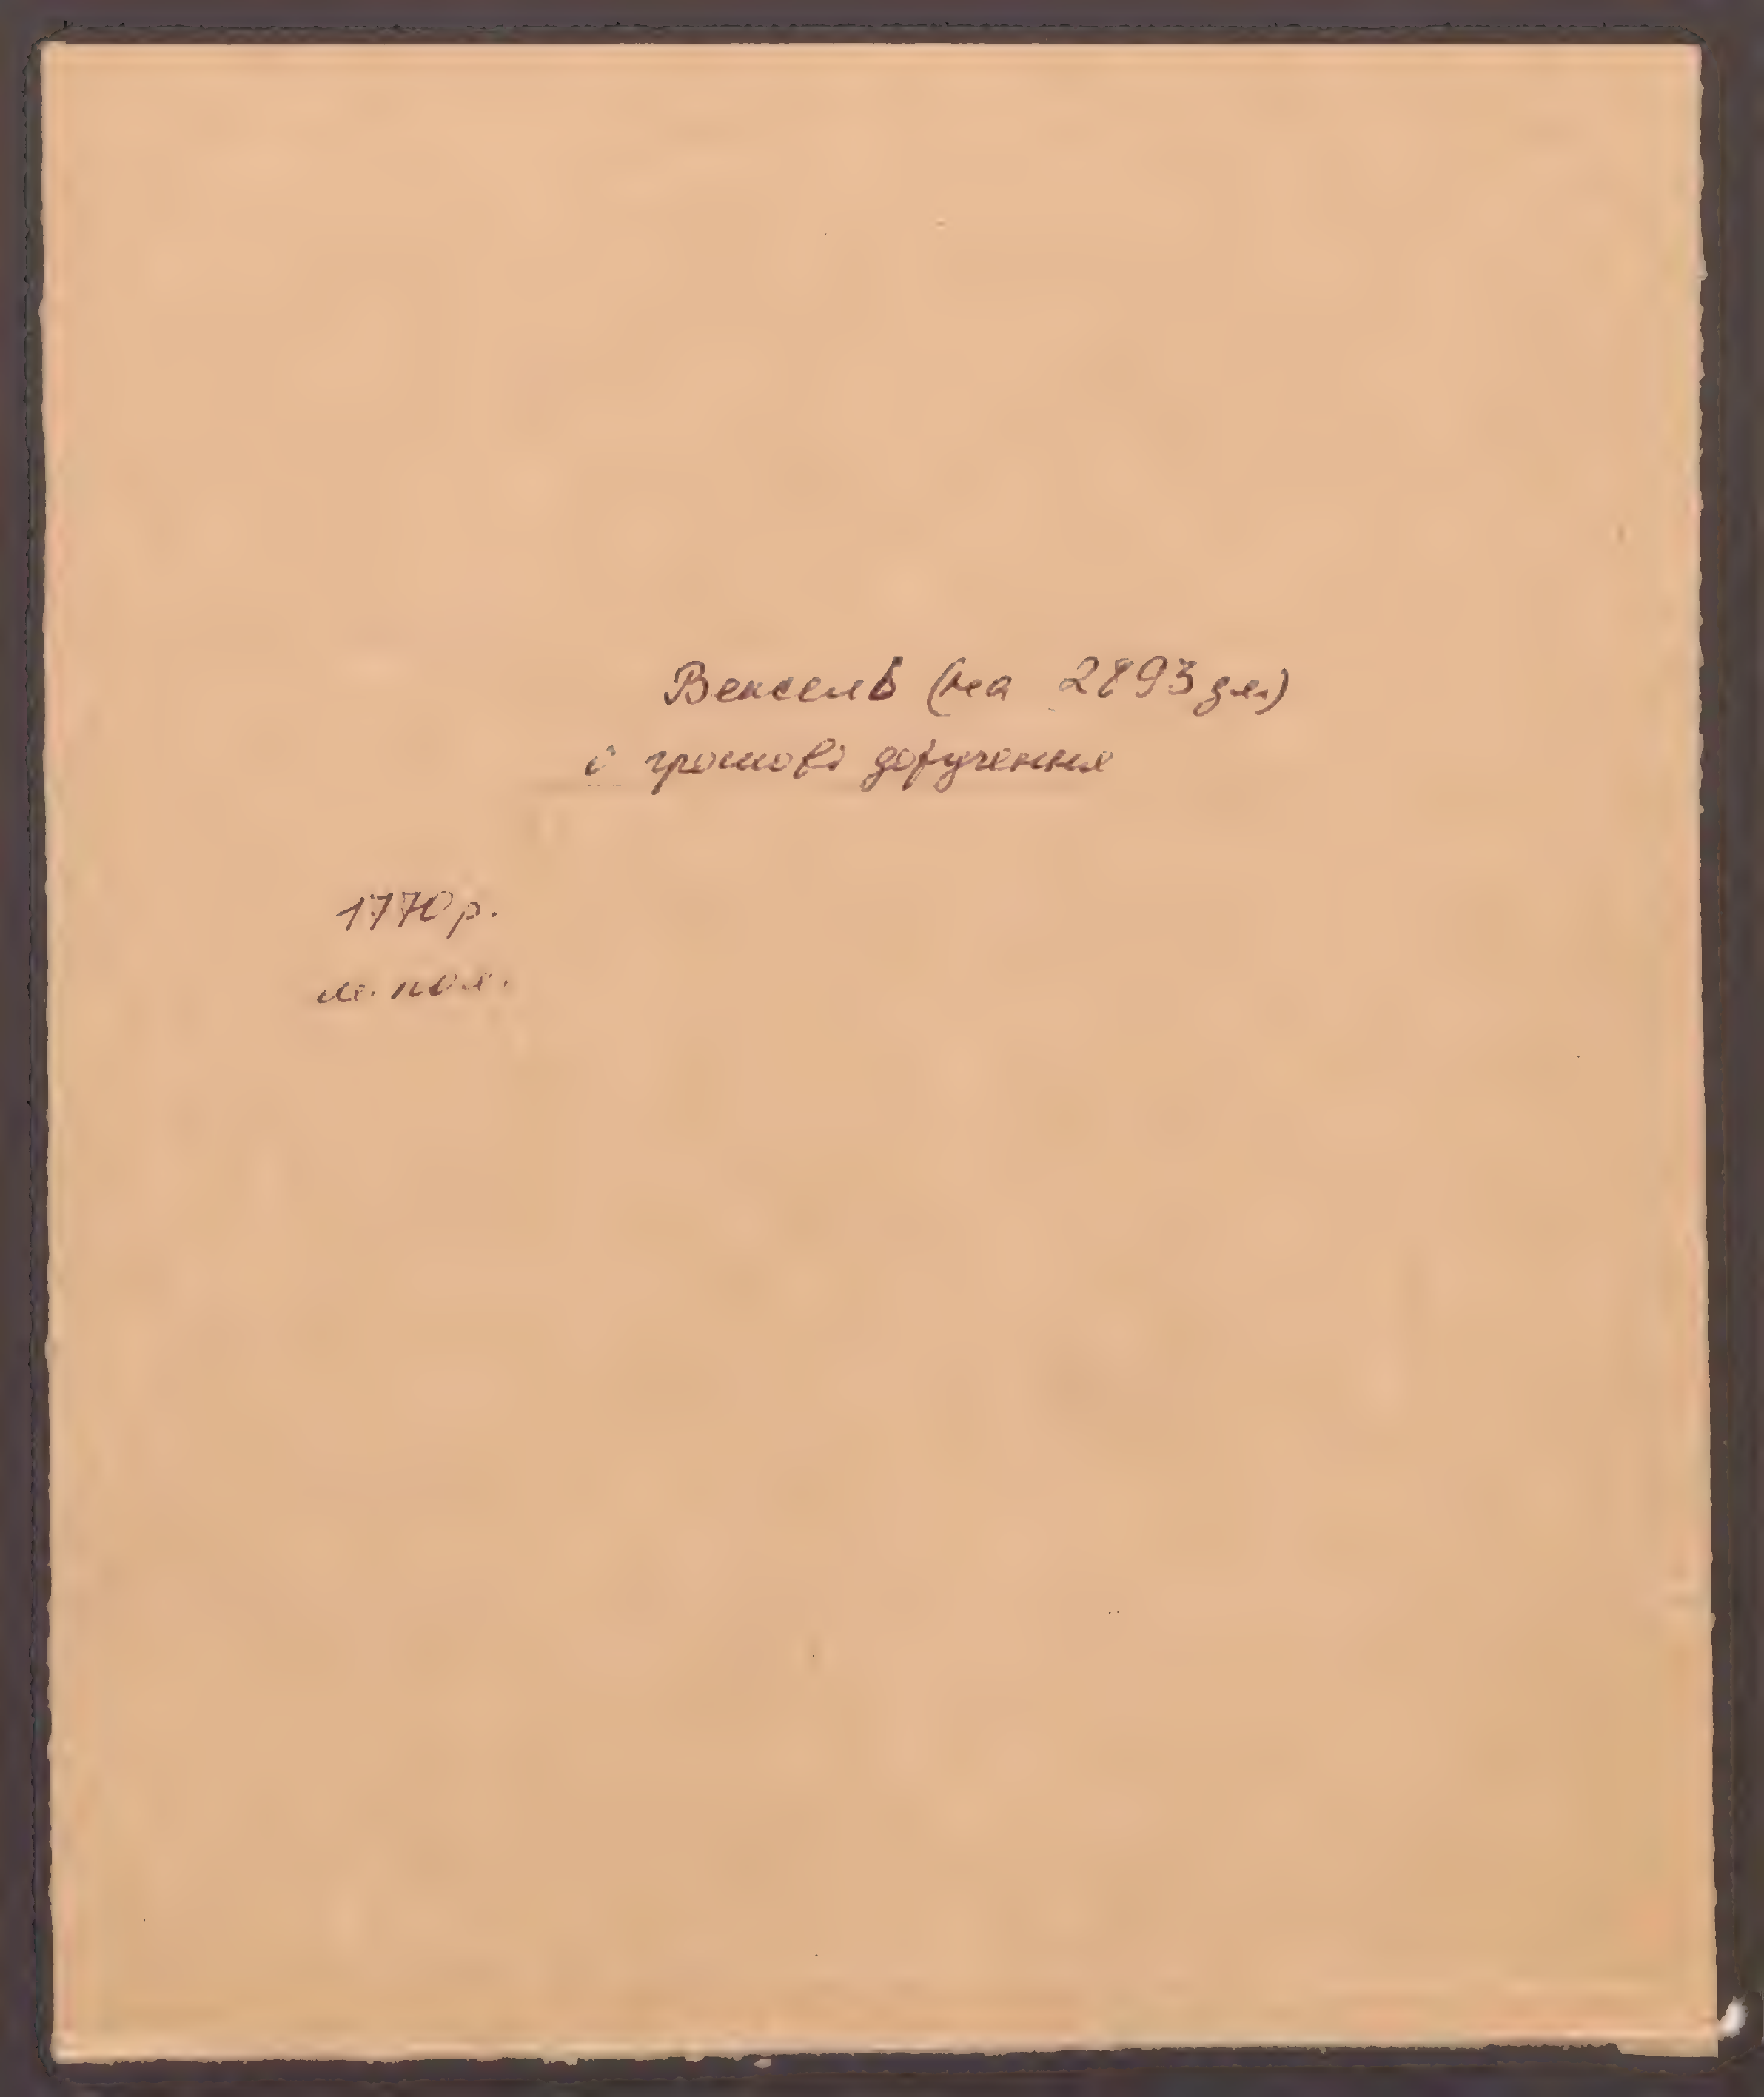 Вексель (на 2893 зл.)
і грошові доручення
1770 р.
м. пол.